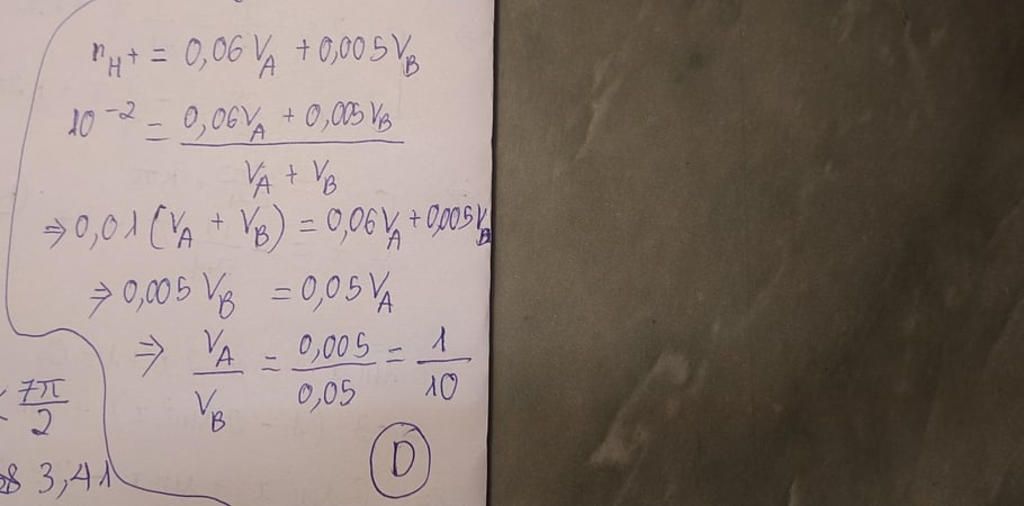 n_H+ = 0,06 V_A + 0,005 V_B
10^-2 = (0,06 V_A + 0,005 V_B) / (V_A + V_B)
⇒ 0,01 (V_A + V_B) = 0,06 V_A + 0,005 V_B
⇒ 0,005 V_B = 0,05 V_A
⇒ V_A / V_B = 0,005 / 0,05 = 1 / 10
7π / 2
D
3,41